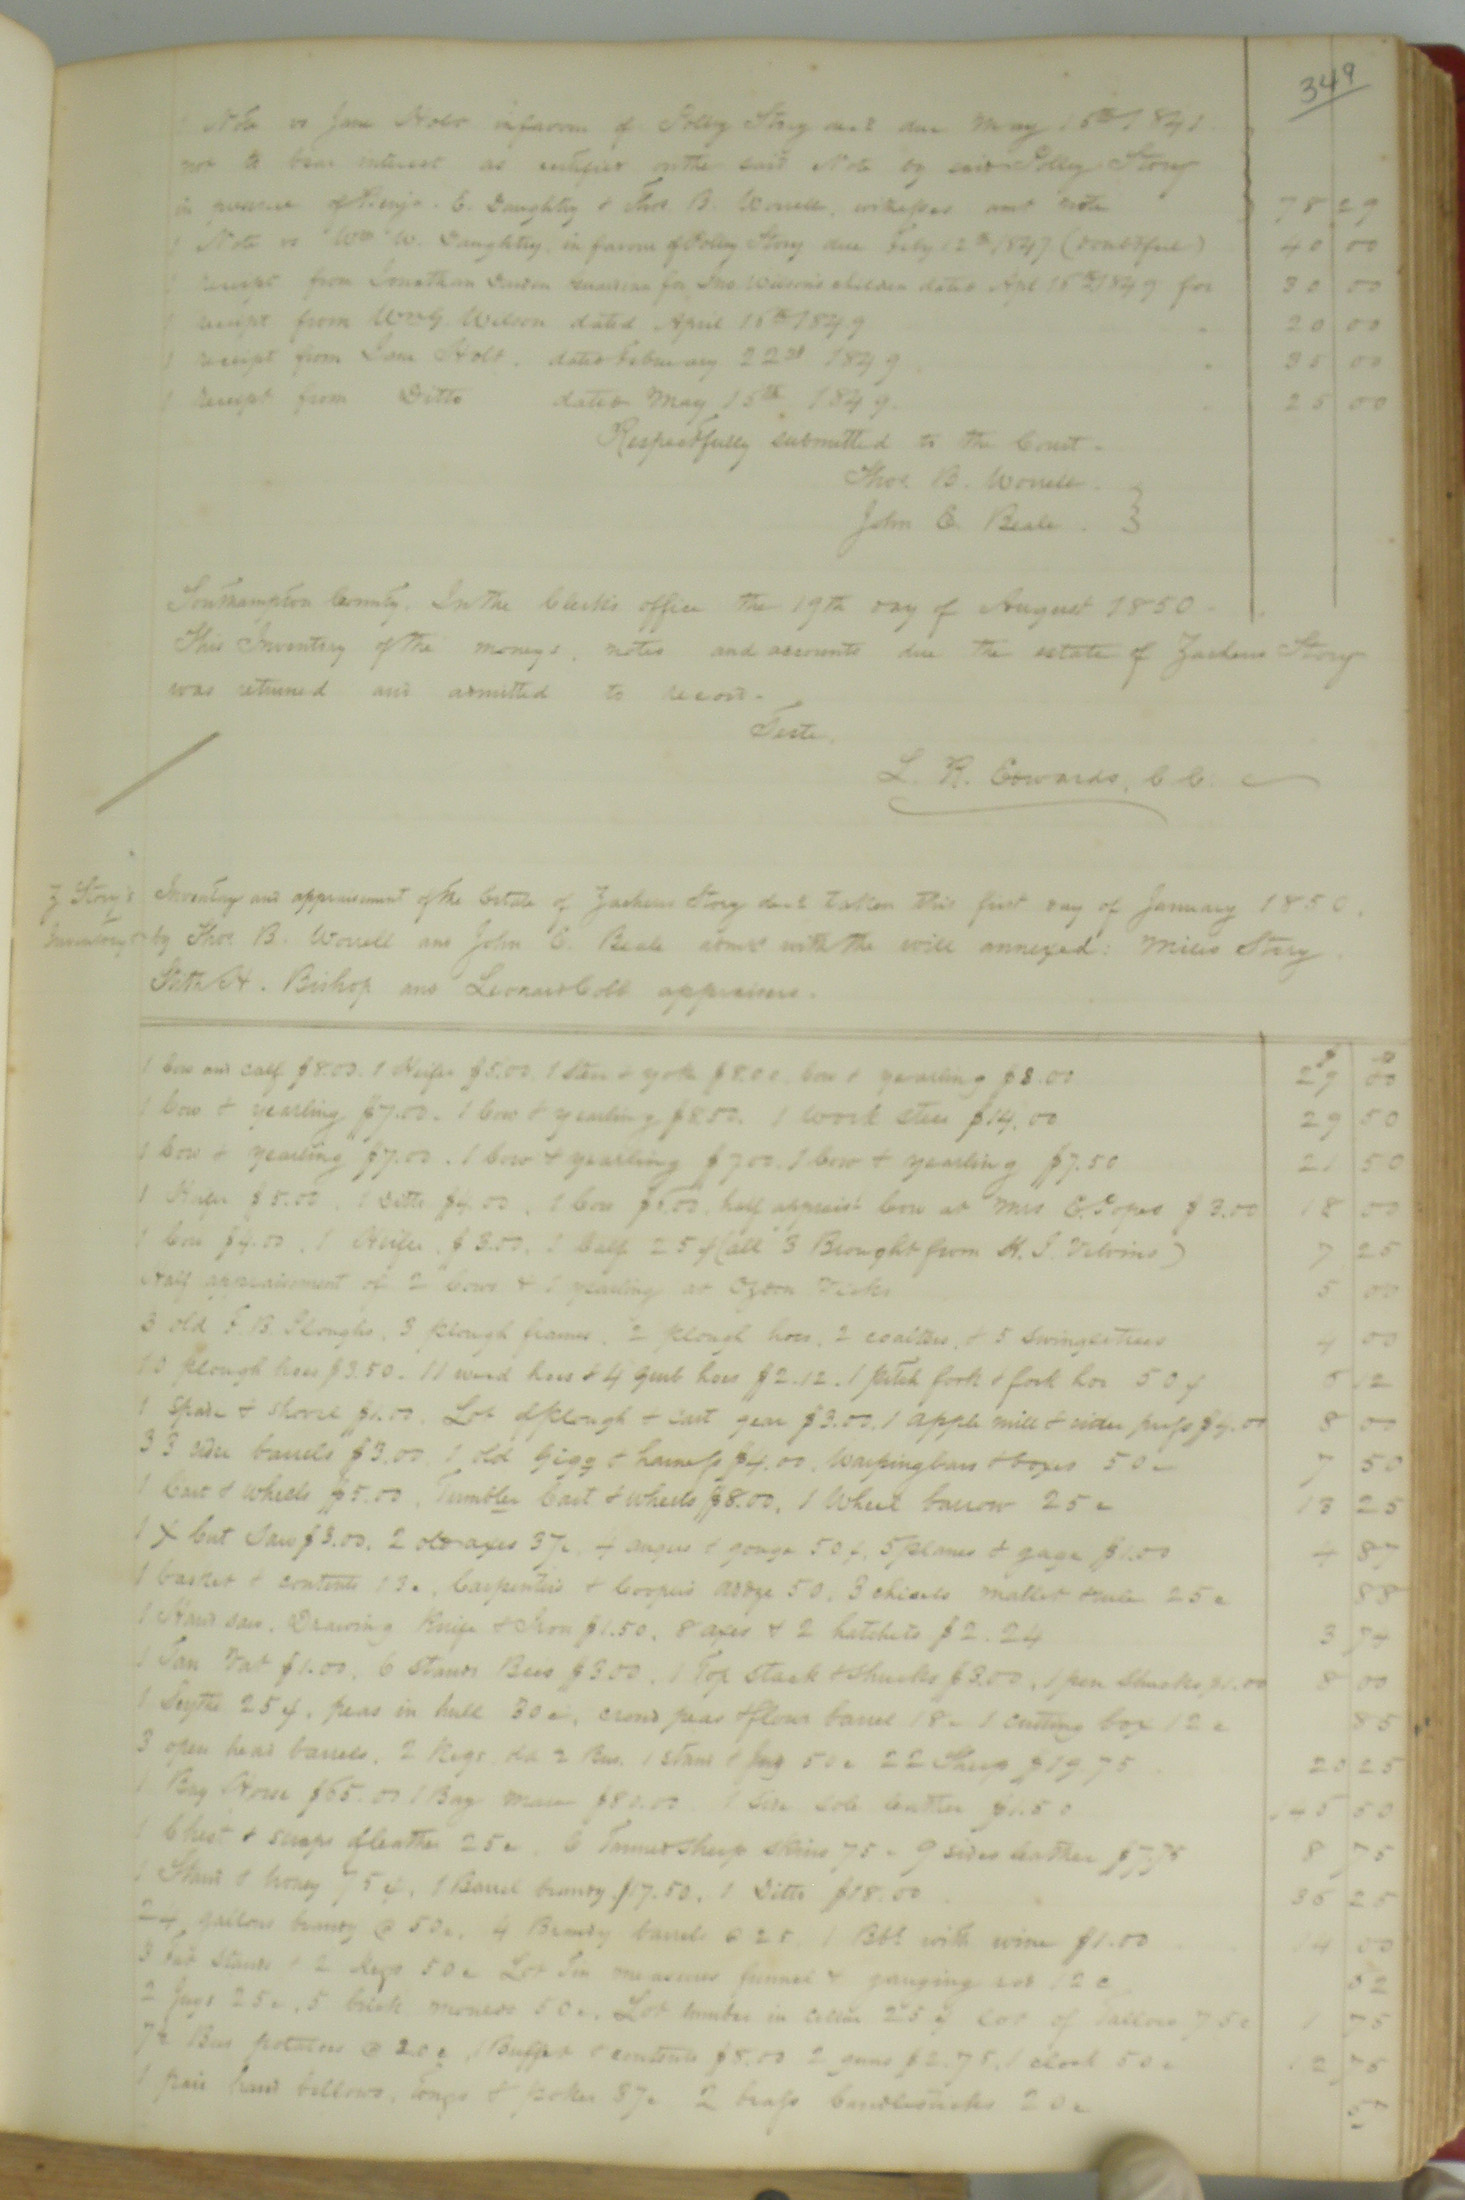 349
1 Note vs Jane Holt in favour of Polly Story dec'd due May 15th 1841
not to bear interest as certified on the said Note by said Polly Story
in presence of Benja. E. Daughtry & Thos B. Worrell, witnesses amt note 78 29
1 Note vs Wm W. Daughtry, in favour of Polly Story due Feby 12th 1847 (doubtful) 40 00
1 receipt from Jonathan Darden Guardian for Jno. Wilson's children dated Apl 16th 1849 for 30 00
1 receipt from Wm G. Wilson dated April 16th 1849 20 00
1 receipt from Jane Holt, dated February 22nd 1849 35 00
1 receipt from Ditto dated May 15th 1849. 25 00
Respectfully submitted to the Court.
Thos. B. Worrell. }
John E. Beale. }
Southampton County. In the Clerk's office the 19th day of August 1850.
This Inventory of the moneys, notes and accounts due the estate of Zacheus Story
was returned and admitted to record.
Teste,
L. R. Edwards, C C.
Z Story's
Inventory
Inventory and appraisement of the Estate of Zacheus Story dec'd taken this first day of January 1850.
by Thos. B. Worrell and John E. Beale admrs with the will annexed: Miles Story.
Seth H. Bishop and Leonard Cobb appraisers.
1 Cow and calf $8.00. 1 Heifer $5.00. 1 Steer & yoke $8.00. Cow & yearling $8.00 29 00
1 Cow & yearling $7.00. 1 Cow & yearling $8.50. 1 Work steer $14.00 29 50
1 Cow & yearling $7.00. 1 Cow & yearling $7.00. 1 Cow & yearling $7.50 21 50
1 Heifer $5.00. 1 Ditto $4.00. 1 Cow $6.00. half appraist Cow at Mrs E. Popes $3.00 18 00
1 Cow $4.00. 1 Heifer $3.00. 1 Calf 25¢ (all 3 Brought from H. J. ) 7 25
Half appraisement of 2 Cows & 1 yearling at 5 00
3 old F. B Ploughs, 3 plough frames, 2 plough hoes, 2 coulters, & 5 Swingletrees 4 00
10 plough hoes $3.50. 11 weed hoes & 4 grub hoes $2.12. 1 pitch fork & fork hoe 50¢ 6 12
1 Spade & shovel $1.00. Lot of plough & cart gear $3.00. 1 apple mill & cider press $4.00 8 00
33 cider barrels $3.00 1 old Gigg & harness $4.00. Warping bars & boxes 50c 7 50
1 Cart & wheels $5.00. Tumbler Cart & wheels $8.00. 1 Wheel barrow 25c 13 25
1 X Cut Saw $3.00. 2 old axes 37c. 4 augers & gouge 50¢. 5 planes & gage $1.00 4 87
1 basket & contents 13c. Carpenter's & Cooper's adze 50. 3 chisels mallet & rule 25c 88
1 Hand saw, Drawing Knife & Iron $1.50. 8 axes & 2 hatchets $2.24 3 74
1 Tan Vat $1.00. 6 Stands Bees $3.00. 1 Top stack & Shucks $3.00. 1 pen Shucks $1.00 8 00
1 Scythe 25¢. peas in hull 30c. crowd peas & flour barrel 18c 1 cutting box 12c 85
3 open head barrels, 2 Kegs, old 2 Bus. 1 stand & Jug 50c 22 Sheep $19.75 20 25
1 Bay Horse $65.00 1 Bay Mare $80.00 1 Side sole leather $1.50 145 50
1 Chest & scraps of leather 25c. 6 Tanned sheep skins 75c 9 sides leather $7.75 8 75
1 Stand & honey 75¢. 1 Barrel brandy $17.50. 1 Ditto $18.00 36 25
24 gallons brandy @ 50c. 4 Brandy barrels @ 25. 1 Bbl with wine $1.00 14 00
3 Fat Stands & 2 Kegs 50c Lot Tin measures funnel & gauging rod 12c 62
2 Jugs 25c. 5 brick moulds 50c. Lot lumber in cellar 25¢ Lot of Tallow 75c 1 75
7½ Bus potatoes @ 20c. 1 Buffet & contents $8.00 2 guns $2.75. 1 clock 50c 12 75
1 pair hand bellows, Tongs & poker 37c 2 brass Candlesticks 20c 57